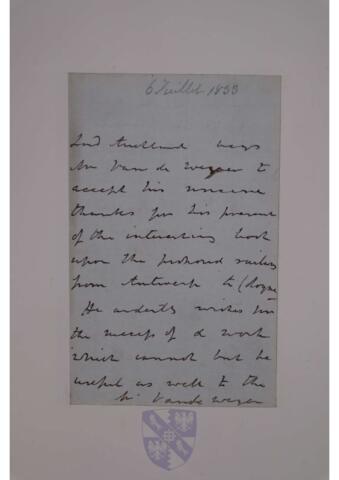 6 Juillet 1833
Lord Auckland begs
Mr Van de weyer to
accept his sincere
thanks for his present
of the interesting book
upon the proposed railway
from Antwerp to Cologne
He ardently wishes for
the success of a work
which cannot but be
useful as well to the
Mr Vande weyer